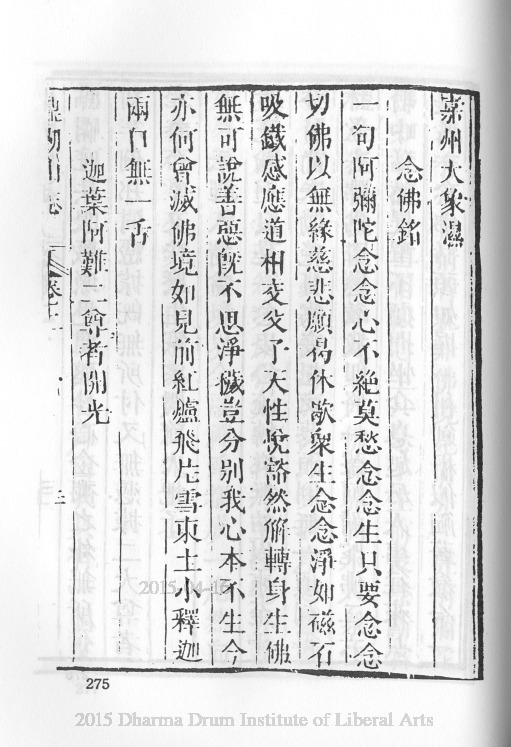 嘉州大象濕
念佛銘
一句阿彌陀念念心不絕莫愁念念生只要念念
切佛以無緣慈悲願曷休歇衆生念念淨如磁石
吸鐵感應道相交父子天性悅豁然觧轉身生佛
無可說善惡旣不思淨穢豈分別我心本不生今
亦何曾滅佛境如見前紅爐飛片雪東土小釋迦
兩口無一舌
迦葉阿難二尊者開光
鼎湖山志
275
2015 Dharma Drum Institute of Liberal Arts